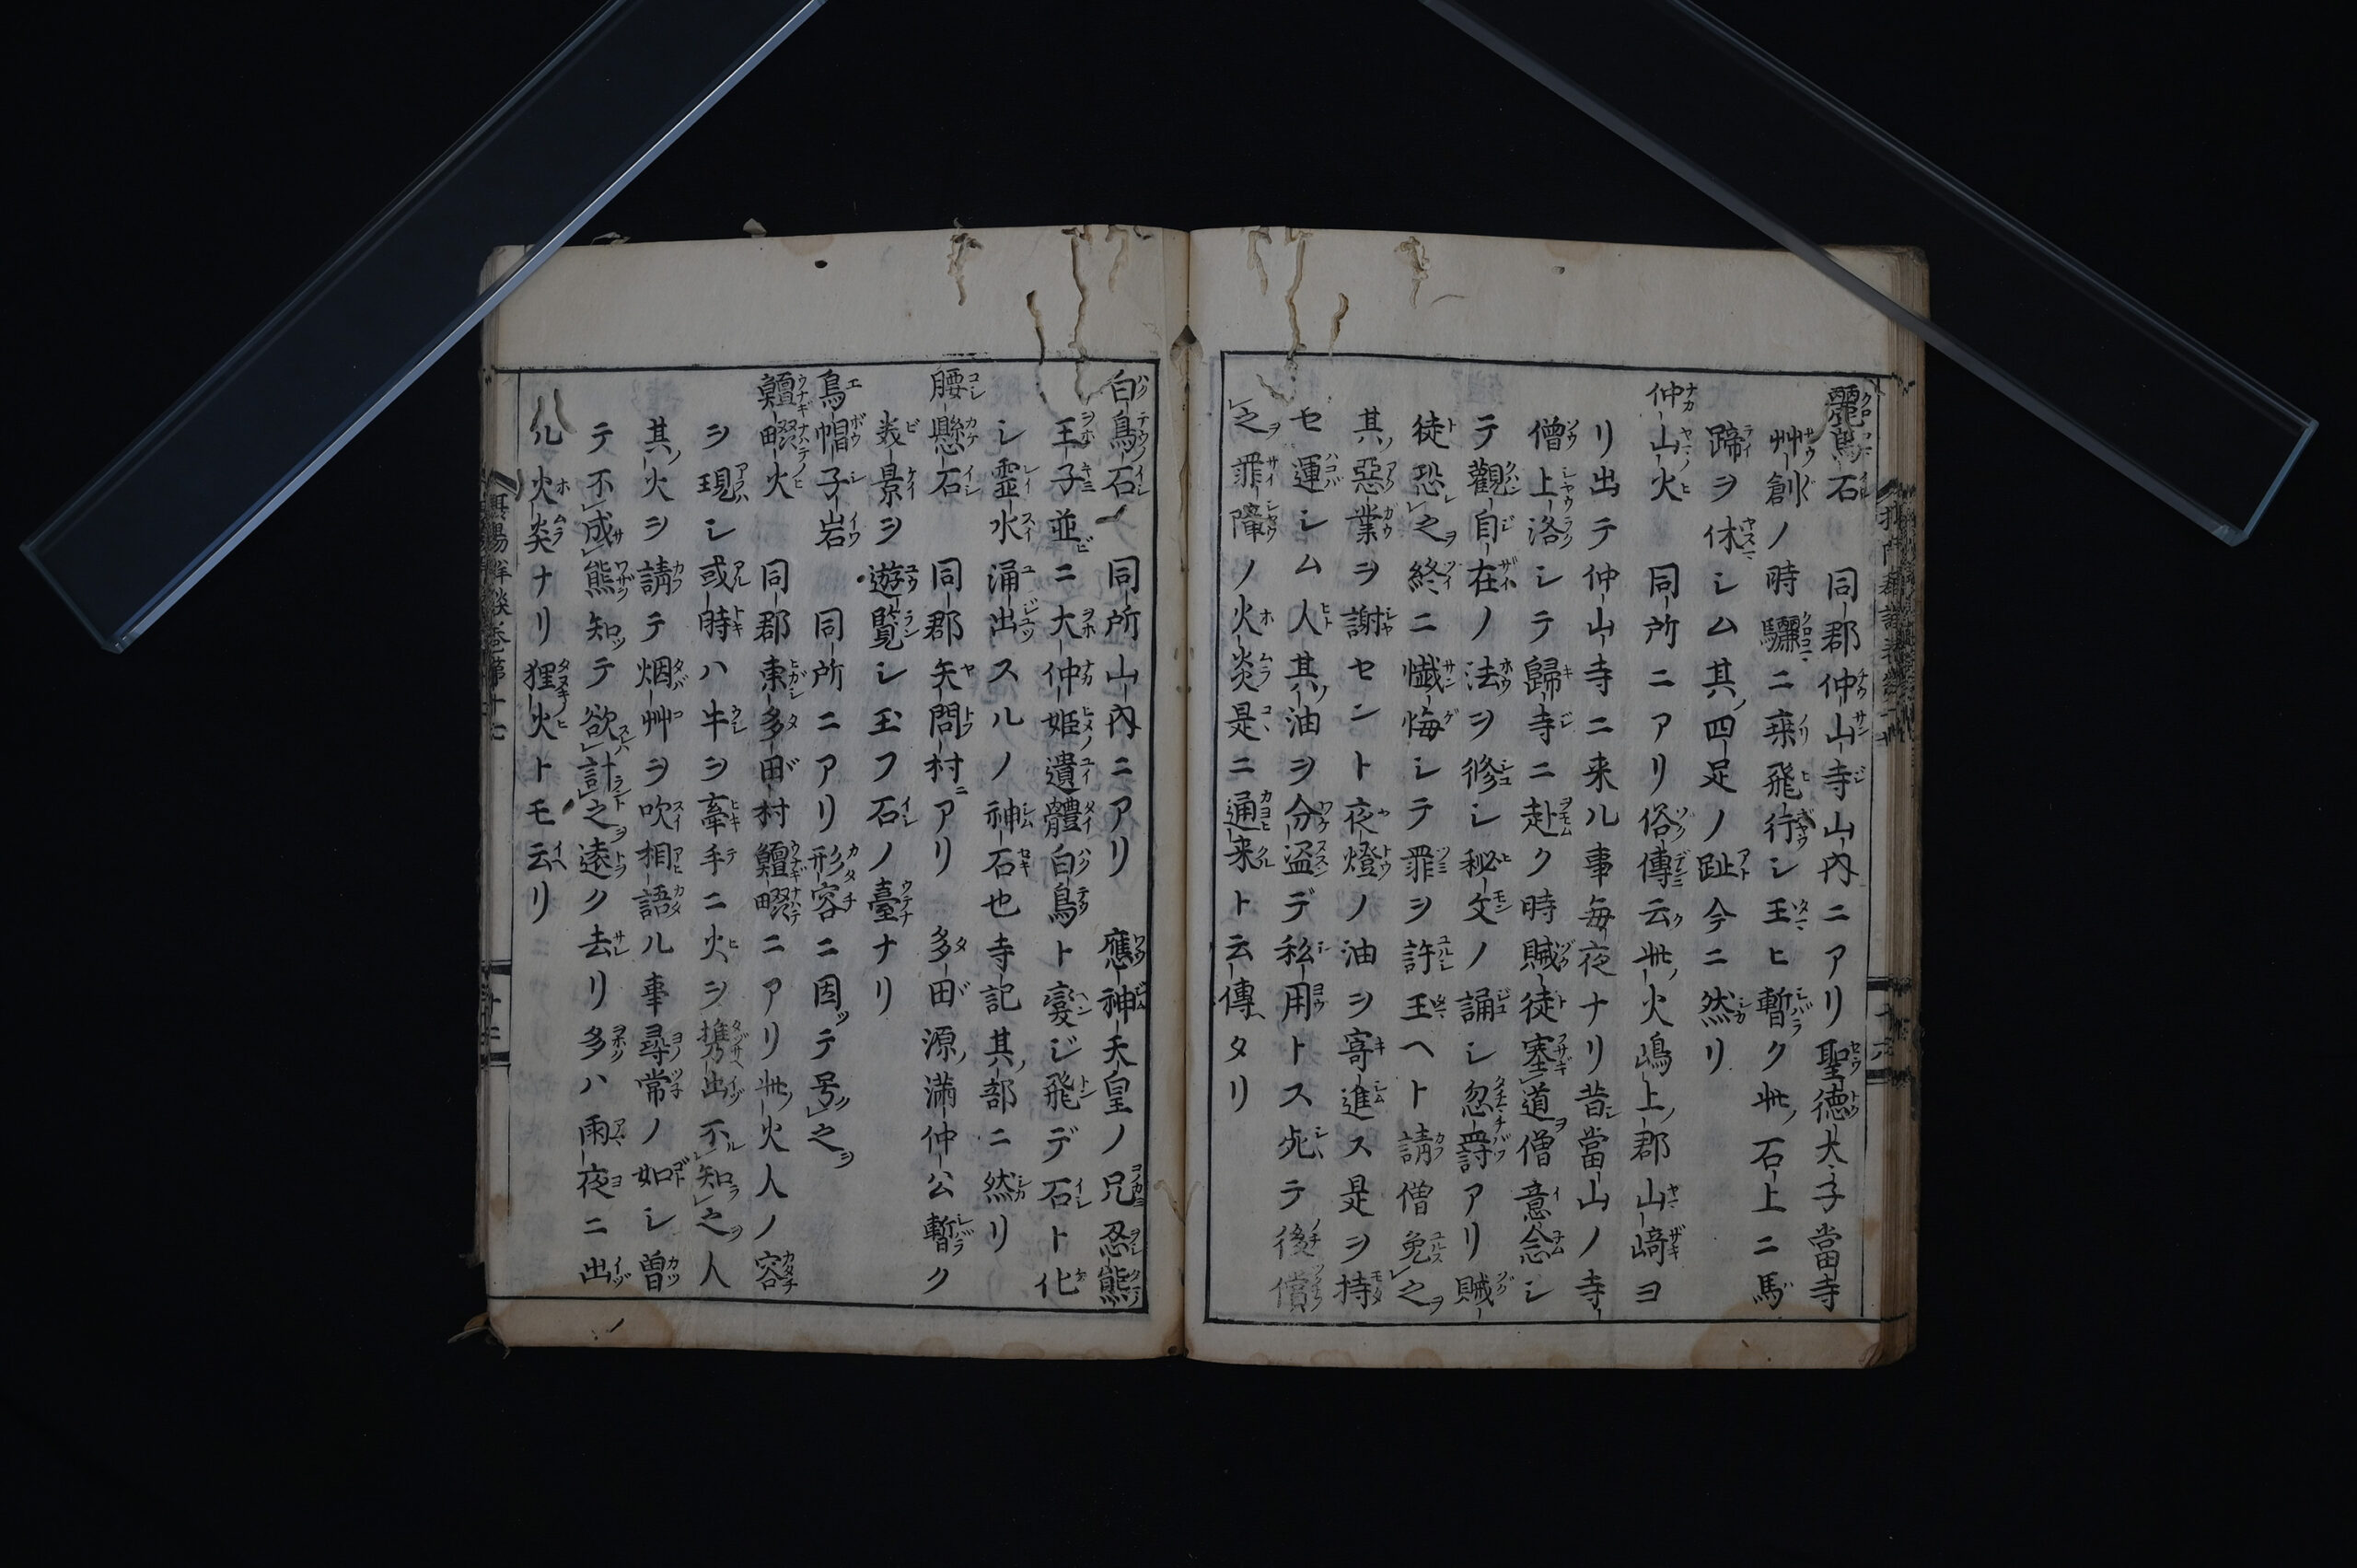 驪馬石 同郡仲山寺山内ニアリ聖徳太子當寺
艸創ノ時驪ニ乗飛行シ玉ヒ暫ク此ノ石上ニ馬
蹄ヲ休シム其ノ四足ノ趾今ニ然リ
仲山火 同所ニアリ俗傳云此ノ火嶋上ノ郡山﨑ヨ
リ出テ仲山寺ニ来ル事毎夜ナリ昔シ當山ノ寺
僧上洛シテ歸寺ニ赴ク時賊徒塞道ヲ僧意念シ
テ觀自在ノ法ヲ修シ秘文ノ誦シ忽罸アリ賊
徒恐之ヲ終ニ懺悔シテ罪ヲ許シ玉ヘト請僧免之ヲ
其ノ惡業ヲ謝セント夜燈ノ油ヲ寄進ス是ヲ持
セ運シム人其ノ油ヲ分盗デ私用トス死テ後償
之ヲ罪障ノ火炎是ニ通来ト云傳ヘタリ
白鳥石 同所山内ニアリ 應神天皇ノ兄忍熊
王子並ニ大仲姫遺體白鳥ト變ジ飛デ石ト化
シ霊水涌出スルノ神石也寺記其ノ部ニ然リ
腰懸石 同郡矢問村ニアリ 多田源ノ満仲公暫ク
美景ヲ遊覧シ玉フ石ノ臺ナリ
烏帽子岩 同所ニアリ形容ニ因ッテ号之ヲ
鱣畷火 同郡東多田村鱣畷ニアリ此ノ火人ノ容
ヲ現シ或時ハ牛ヲ牽手ニ火ヲ携出ヅ不知之ヲ人
其ノ火ヲ請テ烟艸ヲ吹相語ル事尋常ノ如シ曽
テ不成熊知ッテ欲計之ヲ遠ク去リ多ハ雨夜ニ出
ル火炎ナリ狸火トモ云リ